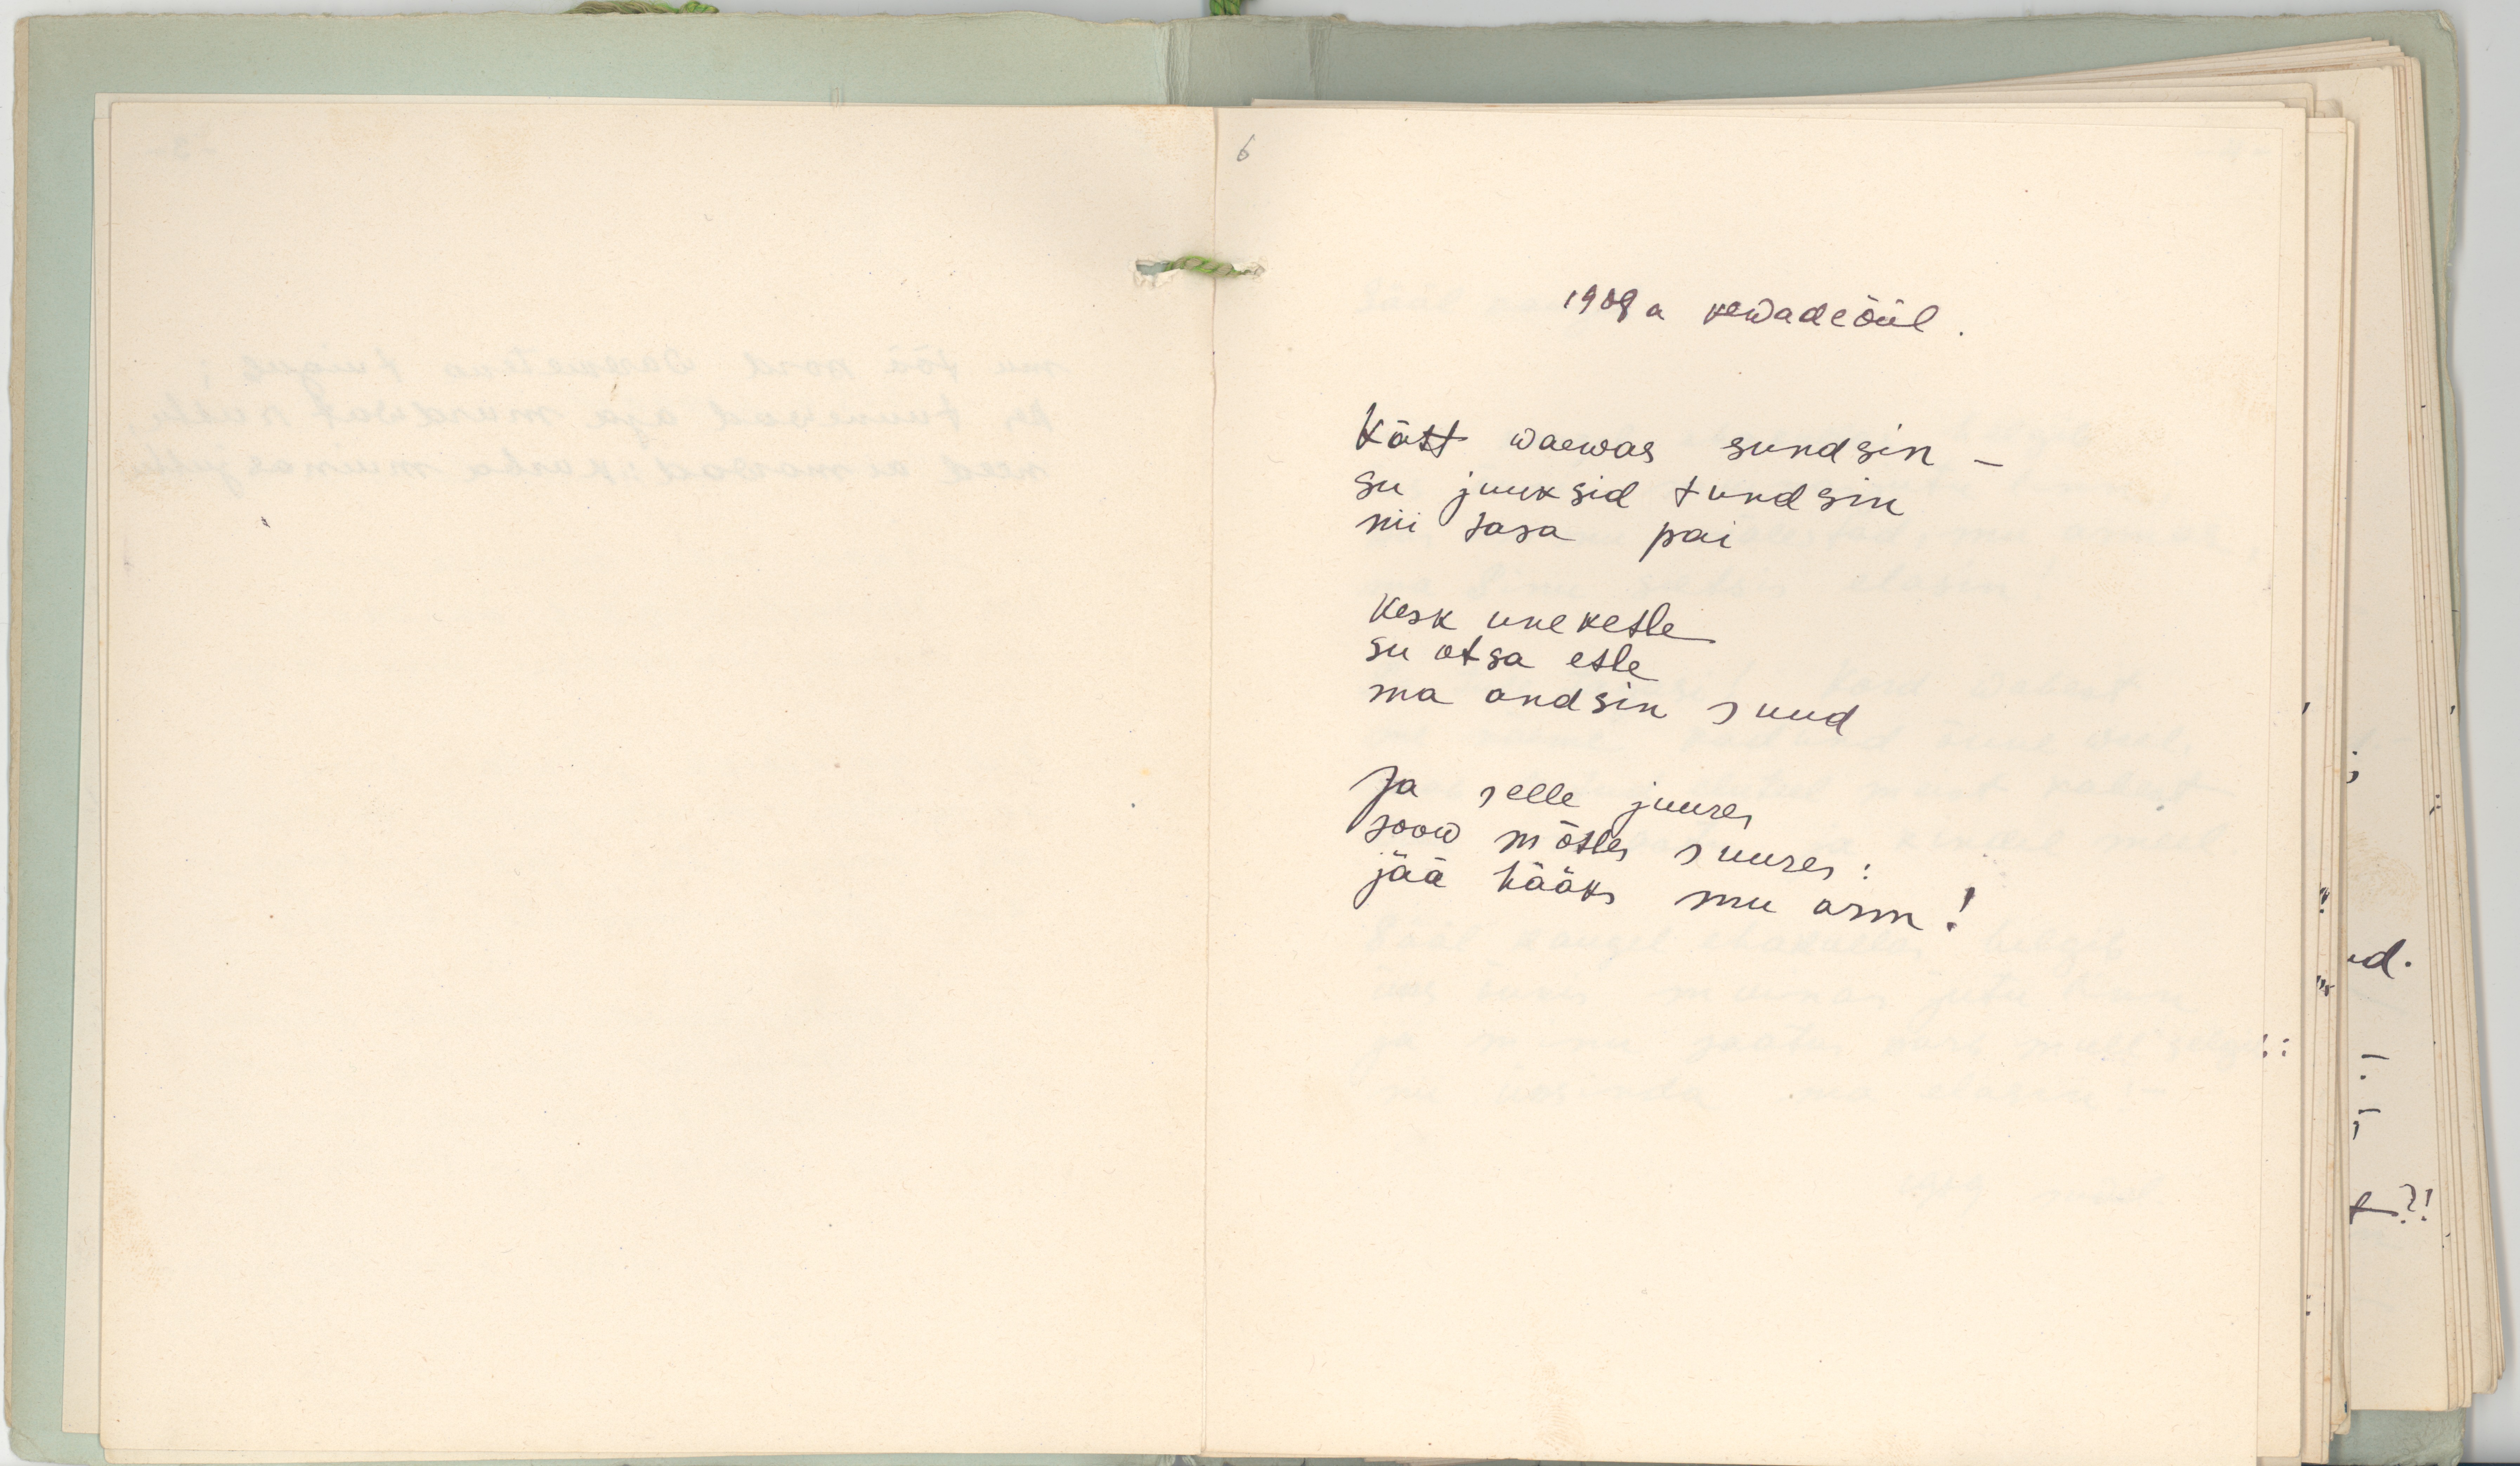 6
1909 a kewadeööl.
Kätt waewas sundsin –
su juuksid tundsin
nii tasa pai
Kesk uneketle
su otsa etle
ma andsin suud
Ja selle juures
soow mõtles suures:
jää hääks mu arm!